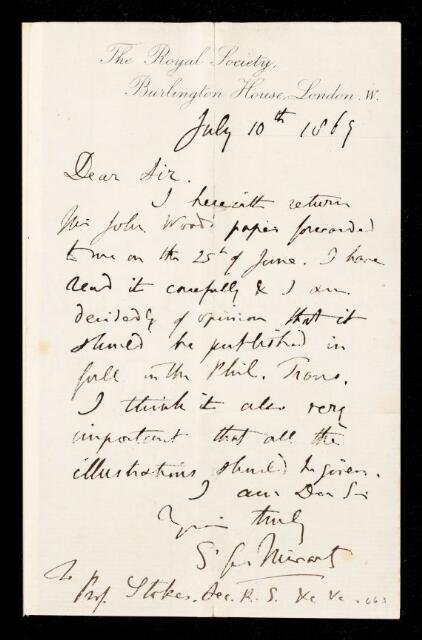 The Royal Society,
Burlington House, London. W.
July 10th 1869
Dear Sir.
I herewith return
Mr John Wood's paper forwarded
to me on the 25th of June. I have
read it carefully & I am
decidedly of opinion that it
should be published in
full in the Phil. Trans.
I think it also very
important that all the
illustrations should be given.
I am Dear Sir
Yours truly
St Geo Mivart
To
Prof. Stokes. Sec. R. S. &c &c